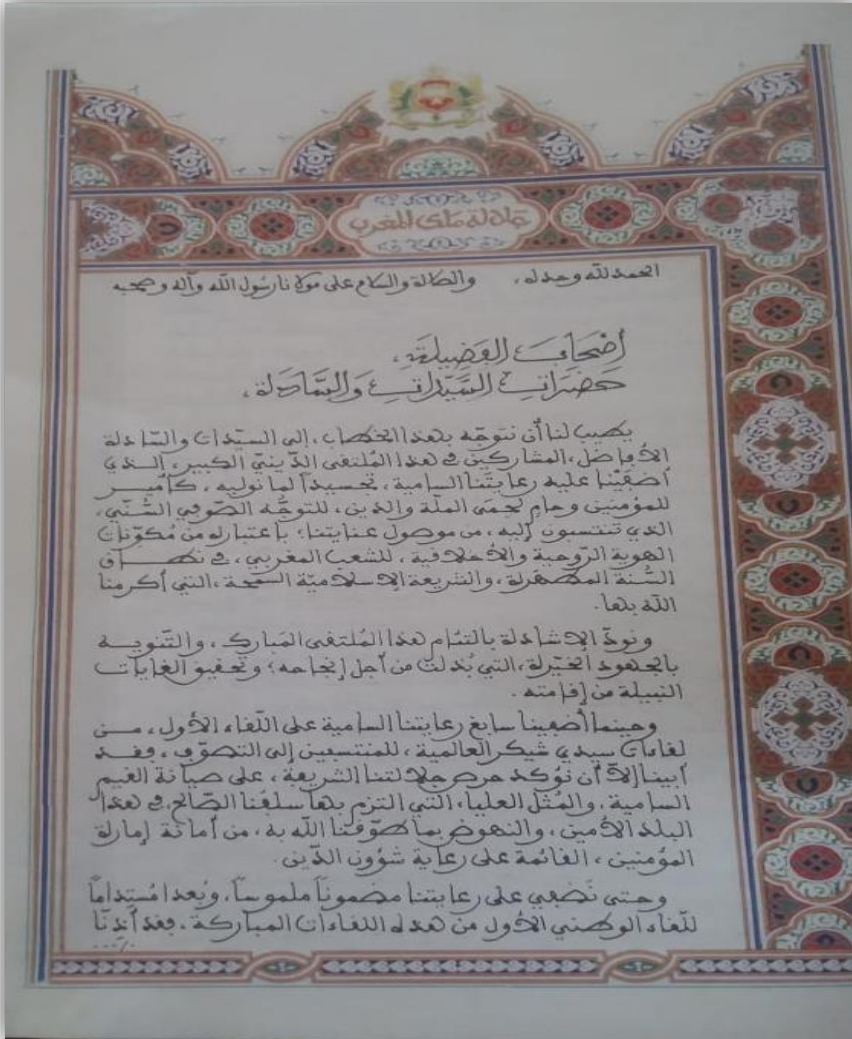 جلالة ملك المغرب
الحمد لله وحده، والصلاة والسلام على مولانا رسول الله وآله وصحبه
أصحاب الفضيلة،
حضرات السيدات والسادة،
يطيب لنا أن نتوجه بهذا الخطاب، إلى السيدات والسادة
الأفاضل، المشاركين في هذا الملتقى الديني الكبير، الذي
أضفينا عليه رعايتنا السامية، تجسيداً لما نوليه، كأمير
للمؤمنين وحام لحمى الملة والدين، للتوجه الصوفي السني،
الذي تنتسبون إليه، من موصول عنايتنا؛ باعتباره من مكونات
الهوية الروحية والأخلاقية، للشعب المغربي، في نطاق
السنة المطهرة، والشريعة الإسلامية السمحة، التي أكرمنا
الله بها.
ونود الإشادة بالتئام هذا الملتقى المبارك، والتنويه
بالجهود الخيرة، التي بذلت من أجل إنجاحه؛ وتحقيق الغايات
النبيلة من إقامته.
وحينما أضفينا سابغ رعايتنا السامية على اللقاء الأول، من
لقاءات سيدي شيكر العالمية، للمنتسبين إلى التصوف، فقد
أبينا إلا أن نؤكد حرص جلالتنا الشريفة، على صيانة القيم
السامية، والمثل العليا، التي التزم بها سلفنا الصالح، في هذا
البلد الأمين، والنهوض بما طوقنا الله به، من أمانة إمارة
المؤمنين، القائمة على رعاية شؤون الدين.
وحتى نضفي على رعايتنا مضموناً ملموساً، وبعدا مستداماً
للقاء الوطني الأول من هذه اللقاءات المباركة، فقد أبينا